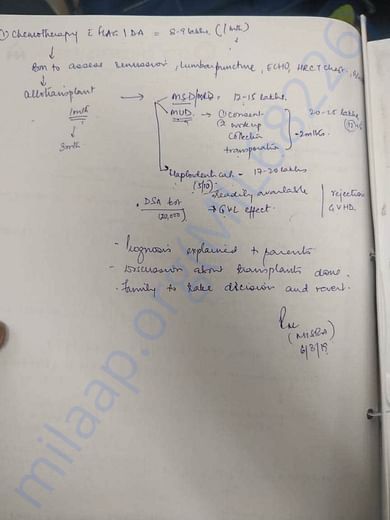 1) Chemotherapy c̄ FLAG IDA = 8-9 lakhs. (1 mth)
↓
BM to assess remission, lumbar puncture, ECHO, HRCT Chest,
↓
Allotransplant → MSD/ - 12-15 lakhs.
1mth
↓
3mth
MUD → ① Consent
② workup
collection
transporation
- 2 mths.
20-25 lakhs
Haploidentical - 17-20 lakhs
(5/10)
→ readily available
→ GVL effect.
rejection
GVHD.
DSA for
(20,000)
- Prognosis explained to parents
- Discussion about transplants done.
- Family to take decision and revert.
6/3/19
milaap.org